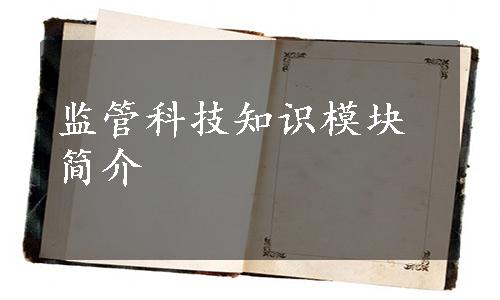 监管科技知识模块
简介